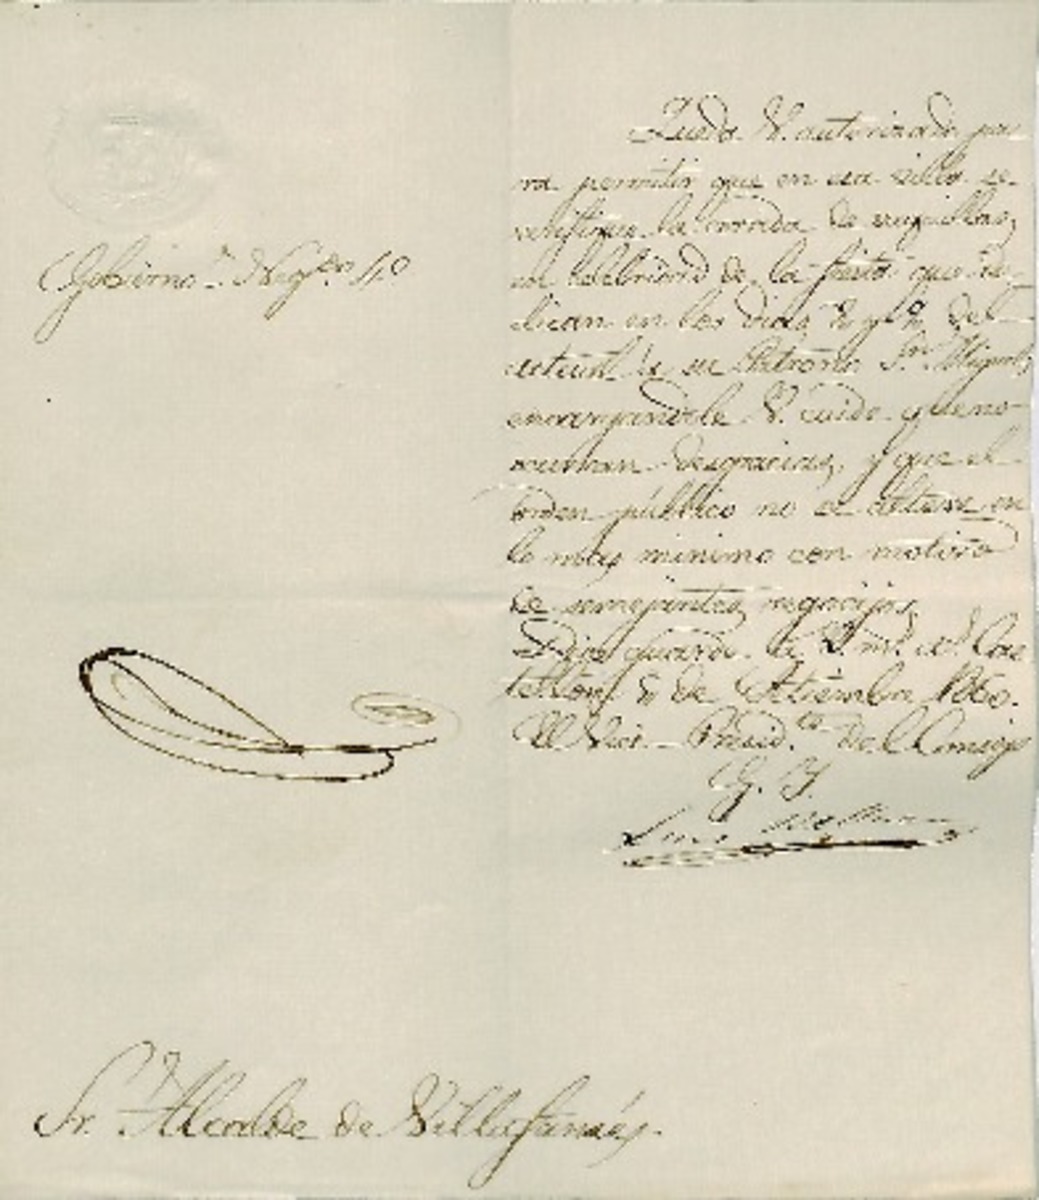 Gobierno. Negdo 4.o
Queda V. autorizado pa
ra permitir que en esa villa se
verifique la corrida de vaquillas,
en celebridad de la fiesta que de
dican en los dias 8 y 9 del
actual á su Patrono Sn. Miguel,
encargandole V. cuide que no
ocurran desgracias, y que el
orden público no se altere en
lo mas minimo con motivo
de semejantes regocijos.
Dios guarde á V. ms. as. Cas
tellon de Setiembre 1860.
El Vice-Presid.te del Consejo
G. I.
Luis
Sr. Alcalde de Villafamés.